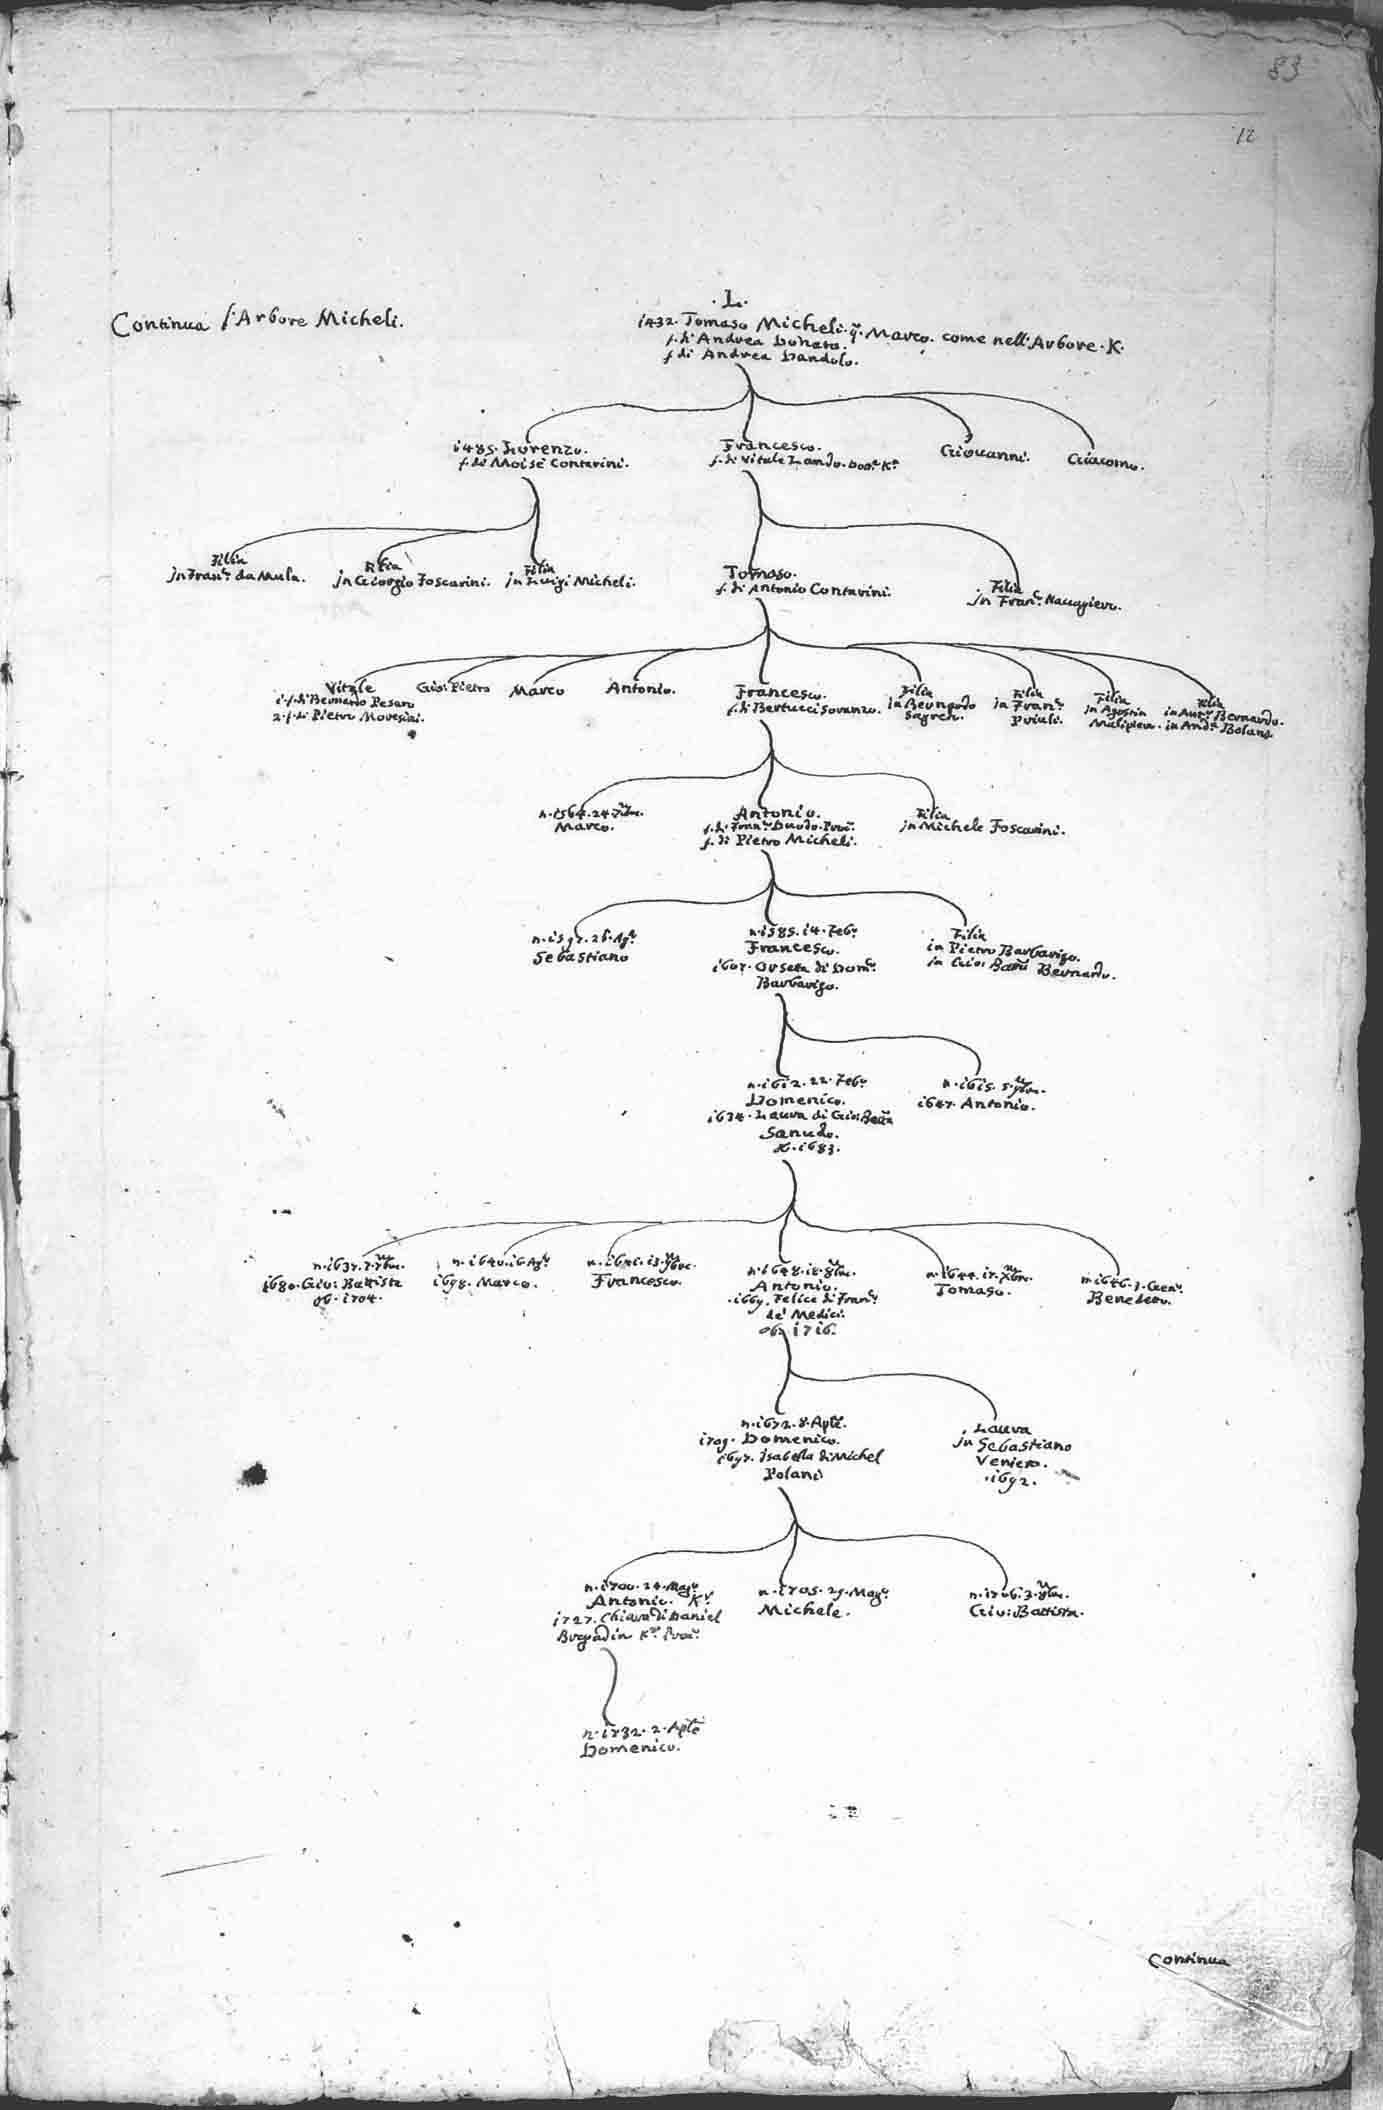 83
12
Continua l'Arbore Micheli.
.L.
1432. Tomaso Micheli. q. Marco. come nell'Arbore. K.
f. di Andrea Donato.
f. di Andrea Dandolo.
1485. Lorenzo.
f. di Moisè Contarini.
Francesco.
f. di Vitale Lando. Dor. Kr.
Giovanni.
Giacomo.
Filia
in Franc. da Mula.
Filia
in Giorgio Foscarini.
Filia
in Luigi Micheli.
Tomaso.
f. di Antonio Contarini.
Filia
in Franc. Navagiero.
Vitale
1. f. di Bernardo Pesaro
2. f. di Pietro Moresini.
Gio: Pietro
Marco
Antonio.
Francesco.
f. di Bertucci Soranzo.
Filia
in Bernardo
Sagredo.
Filia
in Franc.
Priuli.
Filia
in Agostin
Malipiero.
Filia
in Ant. Bernardo.
in And. Bolani.
n. 1564. 24. 7bre.
Marco.
Antonio.
f. di Franc. Duodo. Proc.
f. di Pietro Micheli.
Filia
in Michele Foscarini.
Ag.
Sebastiano
n. 1585. 14. Feb.
Francesco.
1607. Orseta di Dom.
Barbarigo.
Filia
in Pietro Barbarigo.
in Gio: Batta Bernardo.
n. 1612. 22. Feb.
Domenico.
1634. Laura di Gio: Batta
Sanudo.
ob. 1683.
n. 1615. 5. 9bre.
1647. Antonio.
n. 1637. 7. 7bre.
1680. Gio: Battista
ob. 1704.
n. 1640. 16. Ag.
1698. Marco.
n. 1641. 13. 9bre.
Francesco.
n. 1648. 18. 8bre.
Antonio.
1669. Felice di Franc.
de' Medici.
ob. 1716.
n. 1644. 17. Xbre.
Tomaso.
n. 1646. 3. Gen.
Benedetto.
n. 1672. 8. Aple.
1709. Domenico.
1697. Isabella di Michel
Polani
Laura
in Sebastiano
Veniero.
.1692.
n. 1700. 24. Mag.
Antonio. Kr.
1727. Chiara di Daniel
Bragadin Kr. Proc.
n. 1705. 29. Mag.
Michele.
n. 1706. 3. 8bre.
Gio: Battista.
n. 1732. 2. Aple
Domenico.
Continua